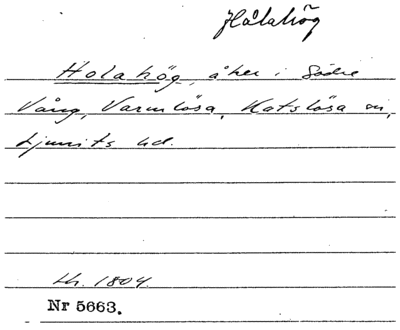 Hålahög
Holahög, åker i Södre
Vång, Varmlösa, Katslösa sn,
Ljunits hd.
Lh. 1804
Nr 5663.